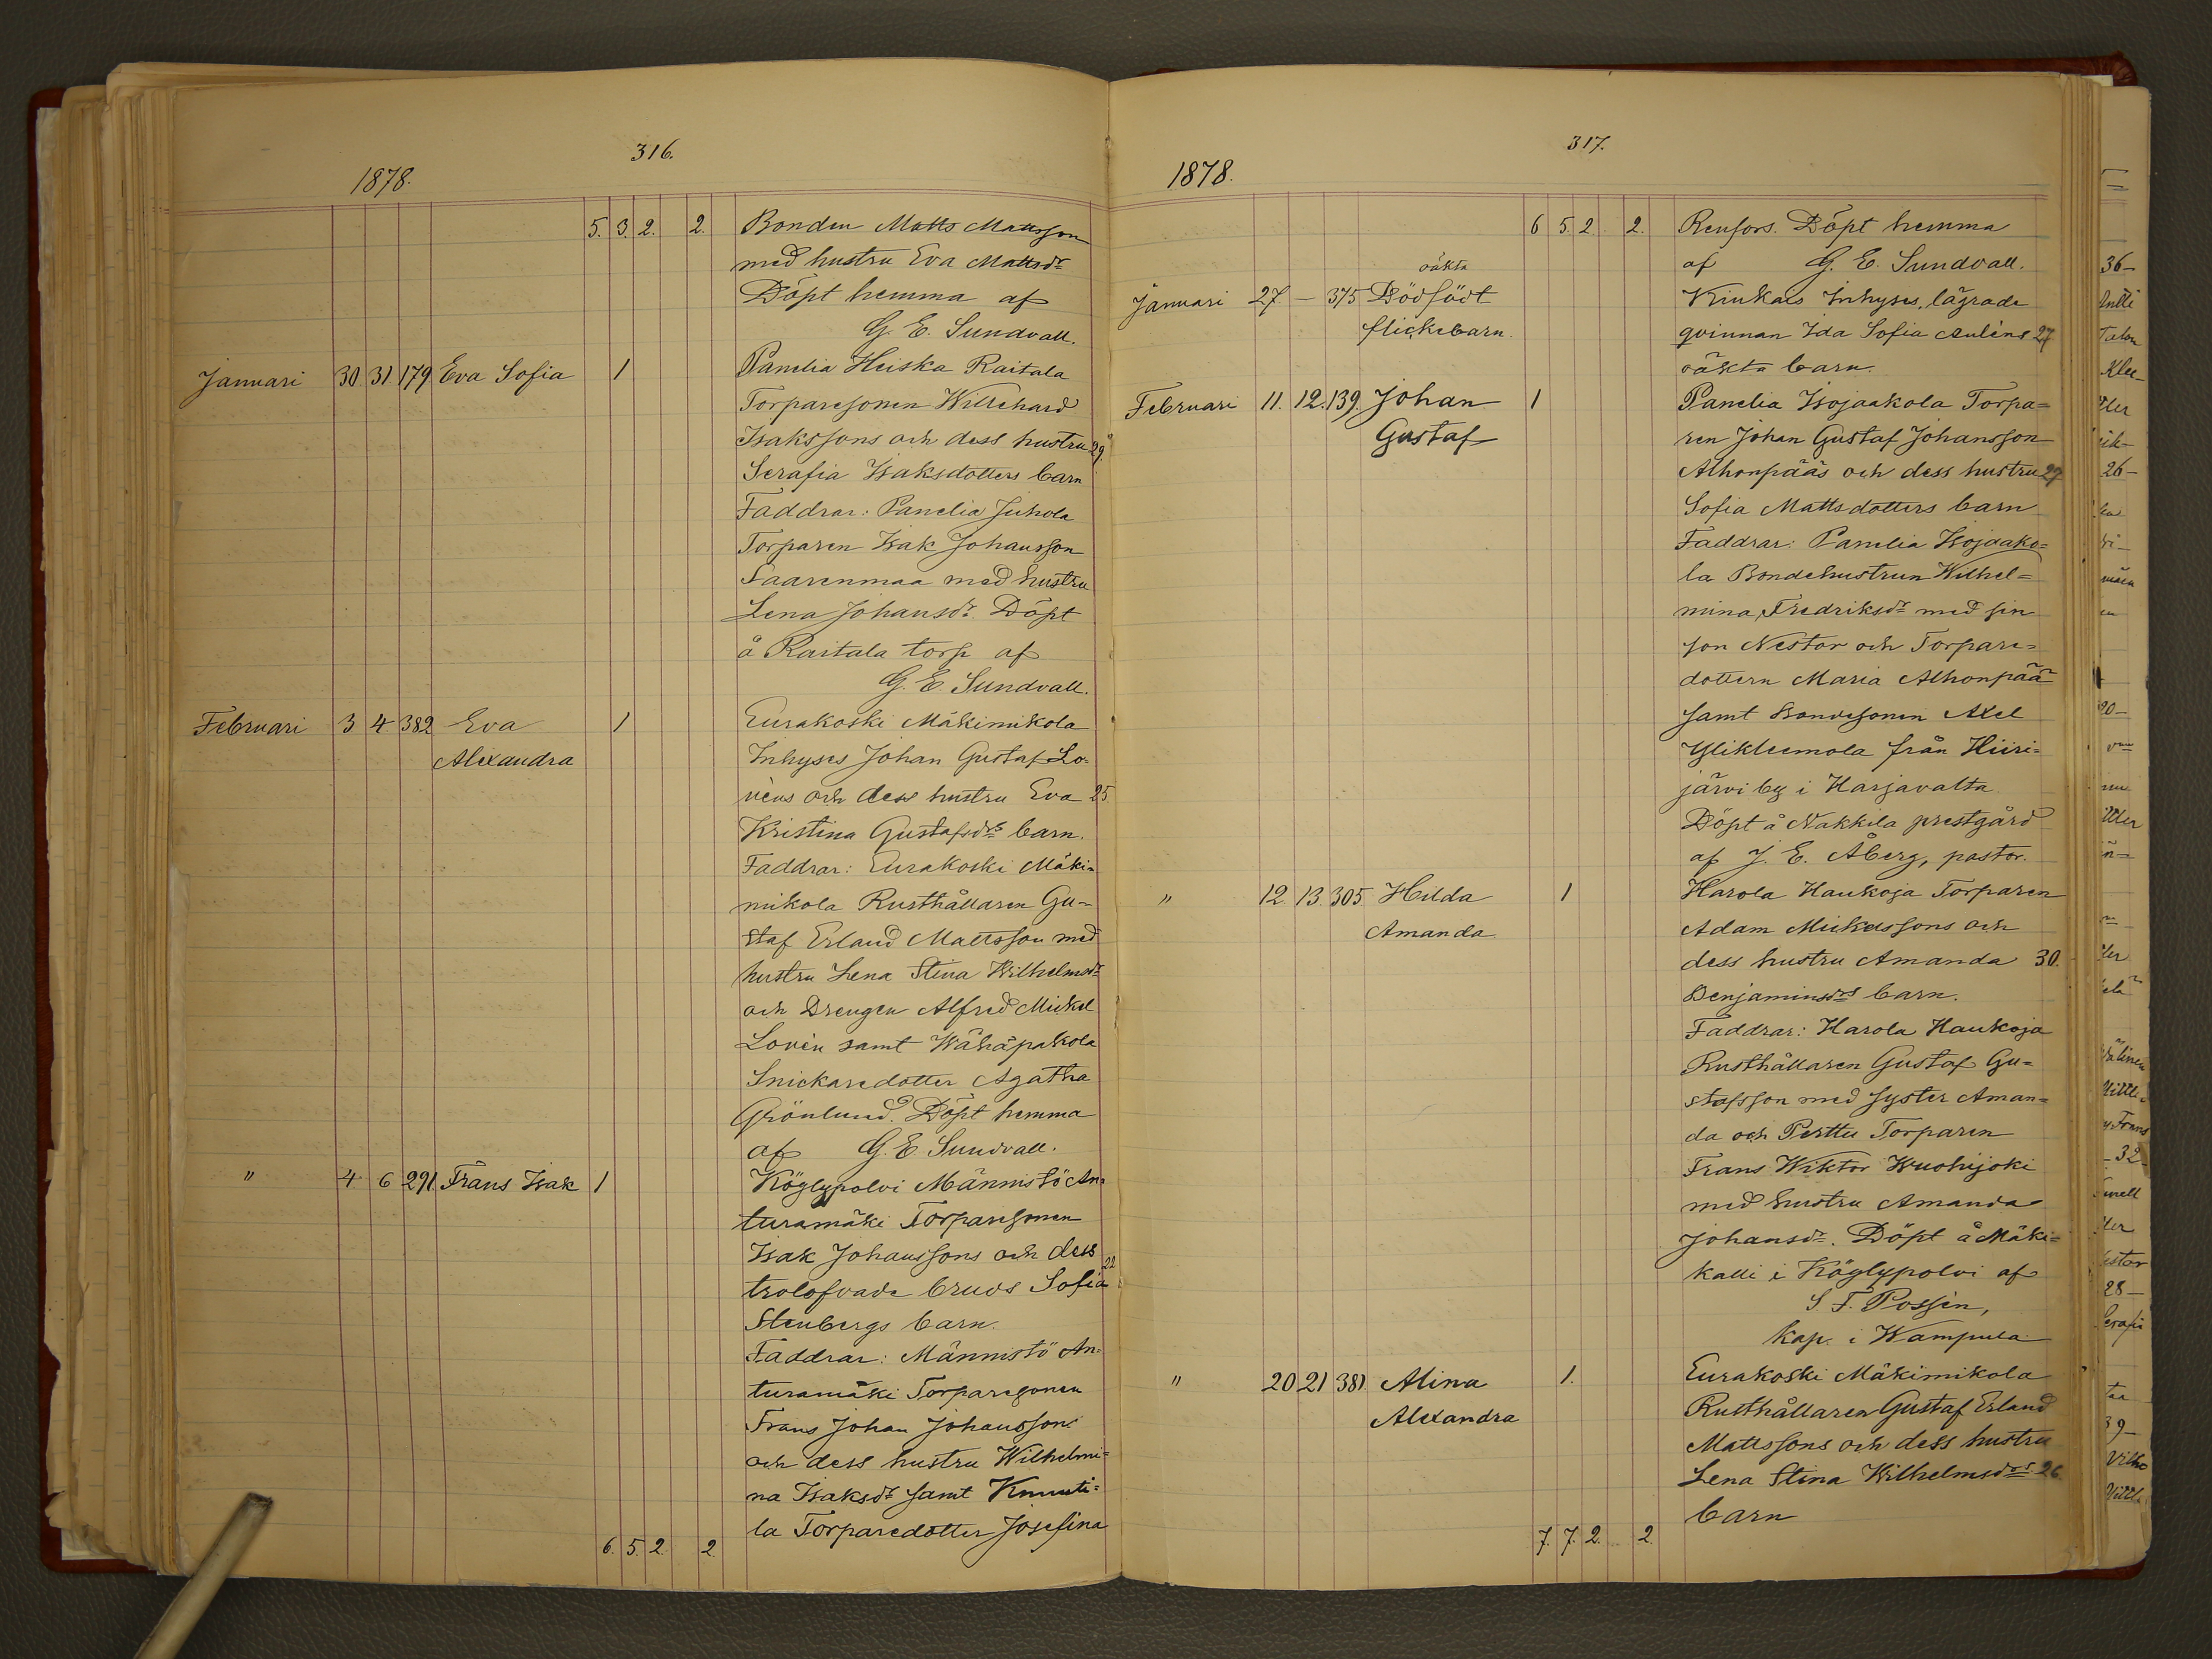 316.
1878.
5. 3. 2. 2. Bonden Matts Mattsson
med hustru Eva Mattsdr
Döpt hemma af
G. E. Sundvall.
Januari 30 31 179 Eva Sofia 1 Panelia Heiska Raitala
Torparesonen Willehard
Isakssons och dess hustru 29
Serafia Isaksdotters barn
Faddrar: Panelia Juhola
Torparen Isak Johansson
Saarenmaa med hustru
Lena Johansdr. Döpt
å Raitala torp af
G. E. Sundvall.
Februari 3 4 382 Eva 1 Eurakoski Mäkimikola
Alexandra Inhyses Johan Gustaf Lo-
véns och dess hustru Eva 25
Kristina Gustafsdrs barn.
Faddrar: Eurakoski Mäki-
mikola Rusthållaren Gu-
staf Erland Mattsson med
hustru Lena Stina Wilhelmsdr
och Drengen Alfred Mickel
Lovén samt Wähäpakola
Snickaredotter Agatha
Grönlund. Döpt hemma
af G. E. Sundvall.
" 4 6 291 Frans Isak 1 Köylypolvi Männistö An-
turamäki Torparesonen
Isak Johanssons och dess
trolofvade bruds Sofia 22
Stenbergs barn.
Faddrar: Männistö An-
turamäki Torparesonen
Frans Johan Johansson
och dess hustru Wilhelmi=
na Isaksdr samt Knuuti=
la Torparedotter Josefina
6. 5. 2. 2.
317.
1878.
6 5. 2 2. Renfors. Döpt hemma
af G. E. Sundvall.
oäkta
Januari 27 — 375 Dödfödt Kiukais Inhyses, lägrade
flickebarn. qvinnan Ida Sofia Auléns 27
oäkta barn.
Februari 11. 12. 139. Johan 1 Panelia Isojaakola Torpa=
Gustaf ren Johan Gustaf Johansson
Alhonpääs och dess hustru 27
Sofia Mattsdotters barn
Faddrar: Panelia Isojaako=
la Bondehustrun Wilhel=
mina Fredriksdr med sin
son Nestor och Torpare=
dottern Maria Alhonpää
samt Bondesonen Axel
Ylikleemola från Hiiri=
järvi by i Harjavalta
Döpt å Nakkila prestgård
af J. E. Åberg, pastor.
" 12. 13. 305 Hilda 1 Harola Haukoja Torparen
Amanda Adam Mickelssons och
dess hustru Amanda 30.
Benjaminsdrs barn.
Faddrar: Harola Haukoja
Rusthållaren Gustaf Gu=
stafsson med syster Aman=
da och Perttu Torparen
Frans Wiktor Wuohijoki
med hustru Amanda
Johansdr. Döpt å Mäki=
kalli i Köylypolvi af
S. F. Possén,
Kap. i Wampula
" 20 21 381 Alina 1. Eurakoski Mäkimikola
Alexandra Rusthållaren Gustaf Erland
Mattssons och dess hustru
Lena Stina Wilhelmsdrs 26
barn
7. 7. 2. 2.